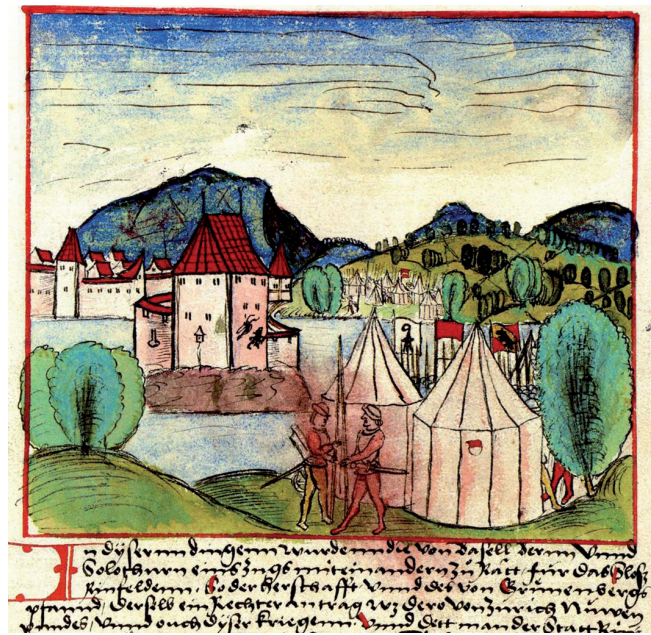 In dysernn dingenn wurdenn die von Basell Bernn Vnnd
Solothurn eins Zugs mit einandernn Zu Rätt / für das Slosz
Rinfeldenn / So der Herschafft Vnnd des von Grünenbergs
pfannd / Derselb ein Rechter antrag wz dero von Zürich Nüwen
pundes / Vnnd ouch dyser kriegenn. Vnnd Dett man der Statt